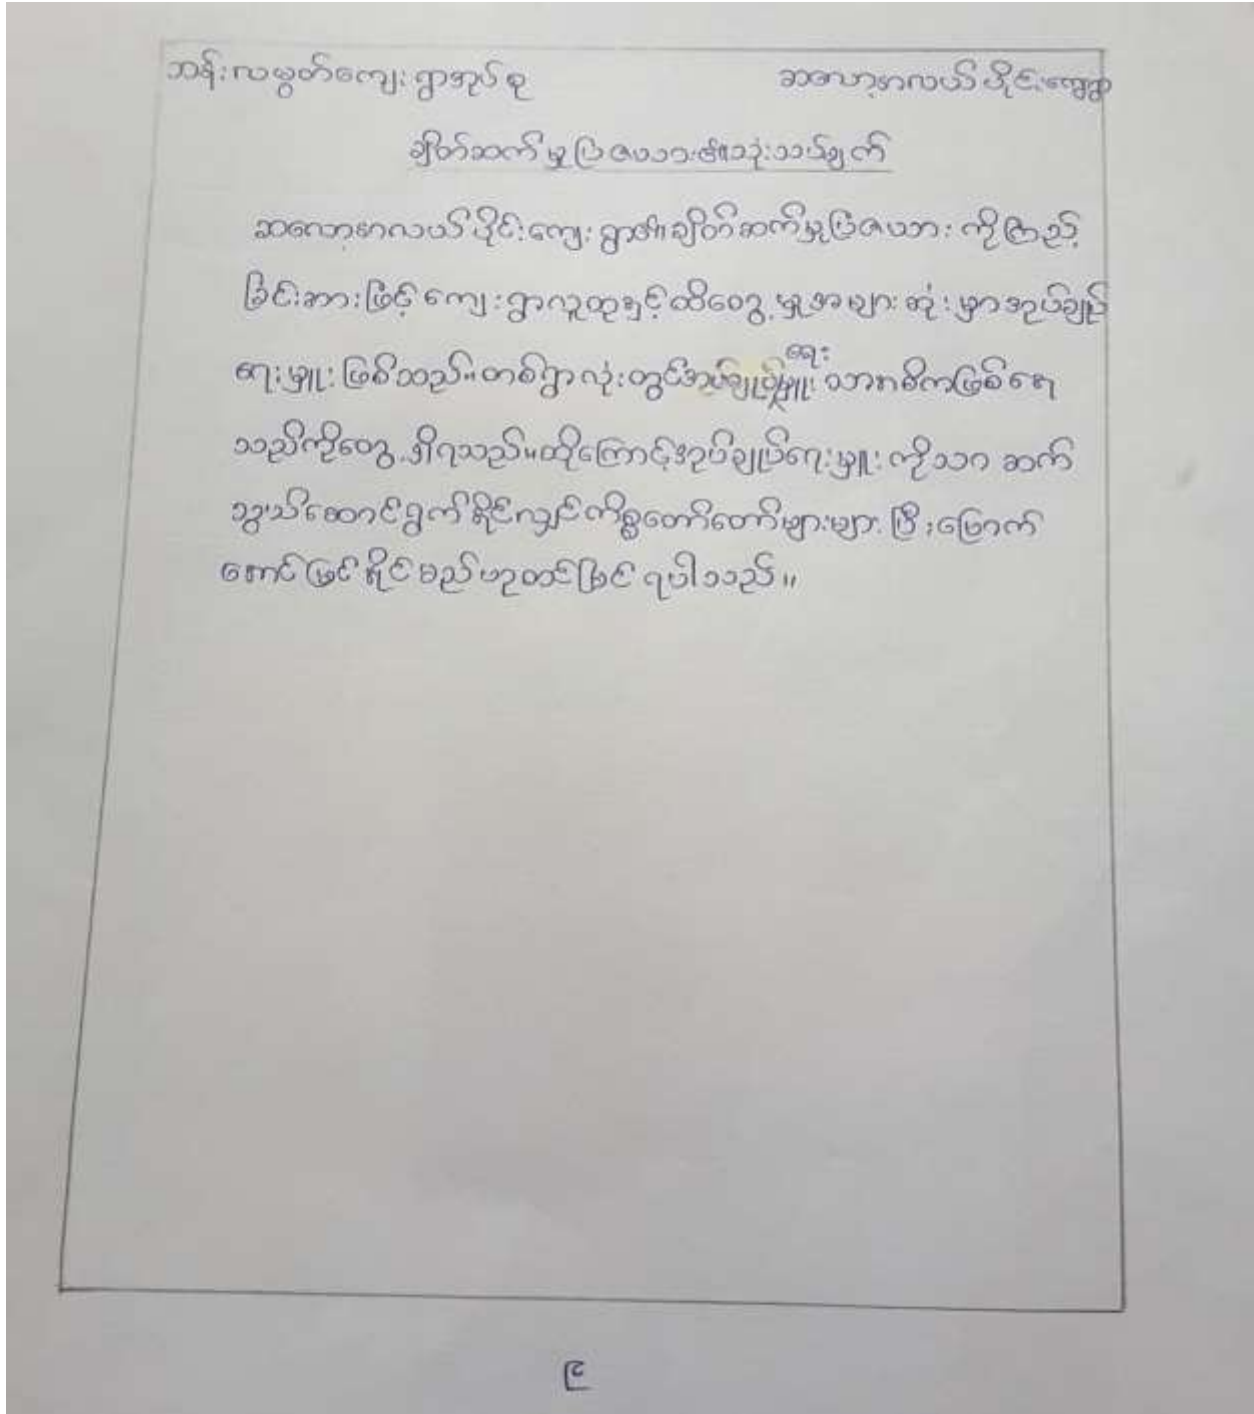 ဘန်းလမွတ်ကျေးရွာအုပ်စု ဆလော့မလယ်ပိုင်းကျေးရွာ
ချိတ်ဆက်မှုပြဇယား၏သုံးသပ်ချက်
ဆလော့မလယ်ပိုင်းကျေးရွာ၏ချိတ်ဆက်မှုပြဇယား ကိုကြည့်
ခြင်းအားဖြင့် ကျေးရွာလူထုနှင့်ထိတွေ့မှုအများဆုံးမှာအုပ်ချုပ်
ရေးမှူးဖြစ်သည်။တစ်ရွာလုံးတွင်အုပ်ချုပ်ရေးမှူး သာအဓိကဖြစ်နေ
သည်ကိုတွေ့ရှိရသည်။ထို့ကြောင့်အုပ်ချုပ်ရေးမှူးကိုသာ ဆက်
သွယ်ဆောင်ရွက်နိုင်လျှင်ကိစ္စတော်တော်များများ ပြီးမြောက်
အောင်မြင်နိုင်မည်ဟုထင်မြင်ရပါသည်။